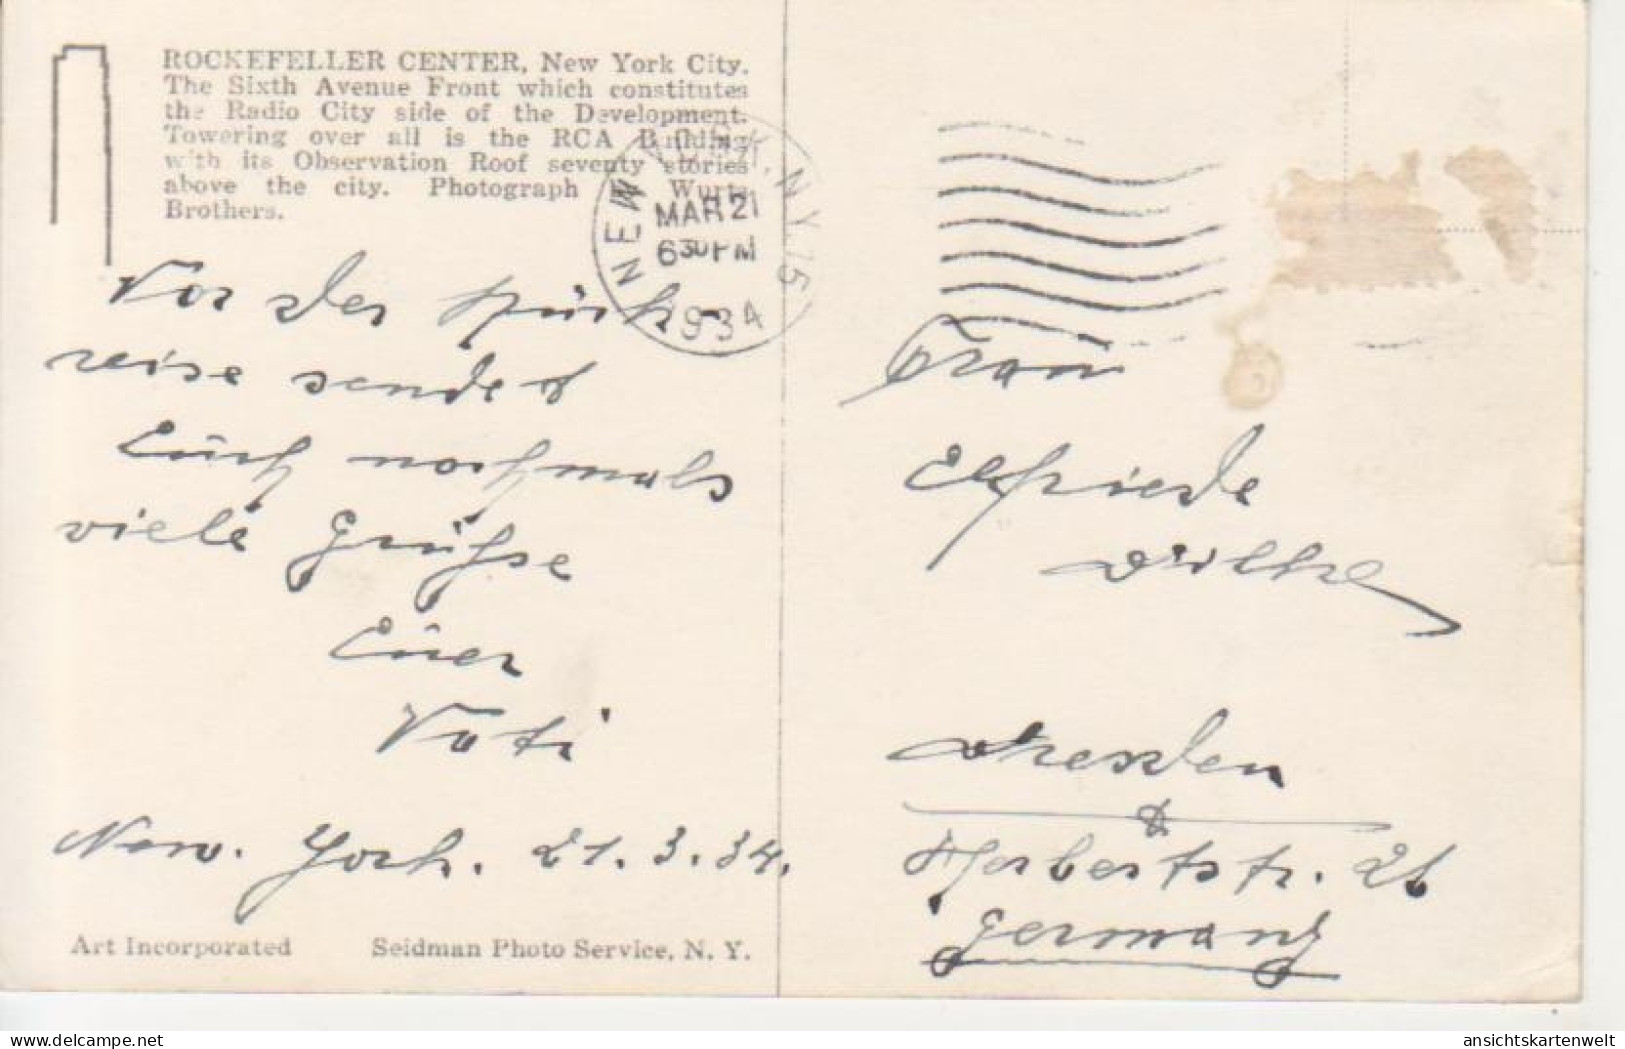 ROCKEFELLER CENTER, New York City.
The Sixth Avenue Front which constitutes
the Radio City side of the Development.
Towering over all is the RCA Building
with its Observation Roof seventy stories
above the city. Photograph Wurts
Brothers.
NEW YORK, N.Y. 15
MAR 21
630 PM
1934
Vor der Rück-
reise sendet
Euch nochmals
viele Grüsse
Euer
Vati
New. York. 21.3.34.
Art Incorporated
Seidman Photo Service, N. Y.
Frau
Elfriede
Dresden
Herbertstr. 26
Germany
www.delcampe.net
ansichtskartenwelt